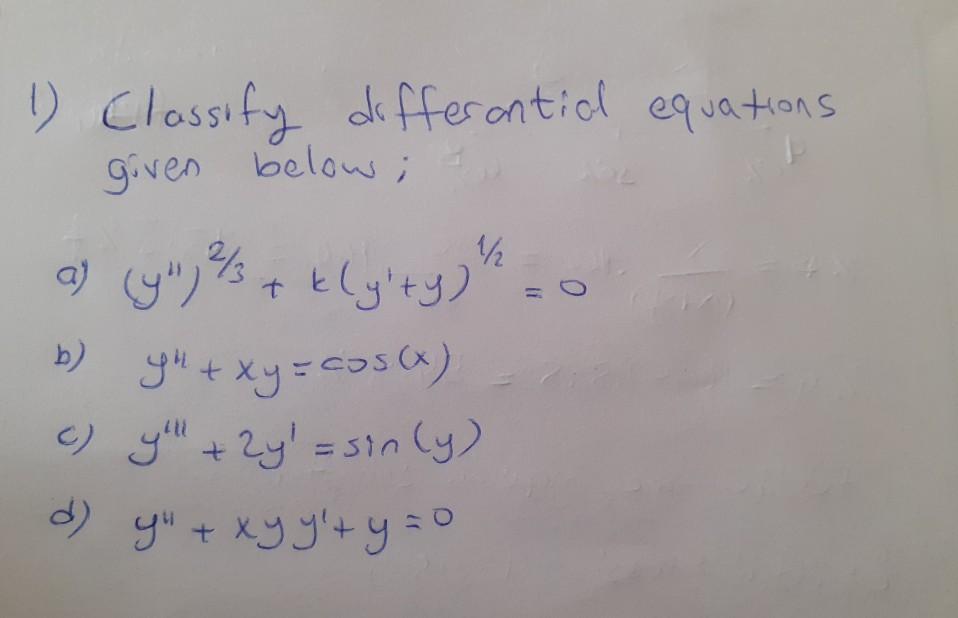 1) Classify differantial equations
given below;
a) (y'')^2/3 + k(y'+y)^1/2 = 0
b) y'' + xy = cos(x)
c) y''' + 2y' = sin(y)
d) y'' + xyy' + y = 0